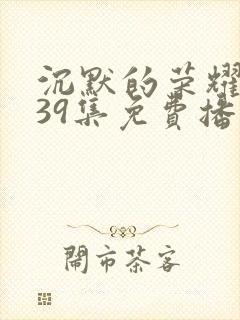 沉默的荣耀
39集免費播
闹市茶客